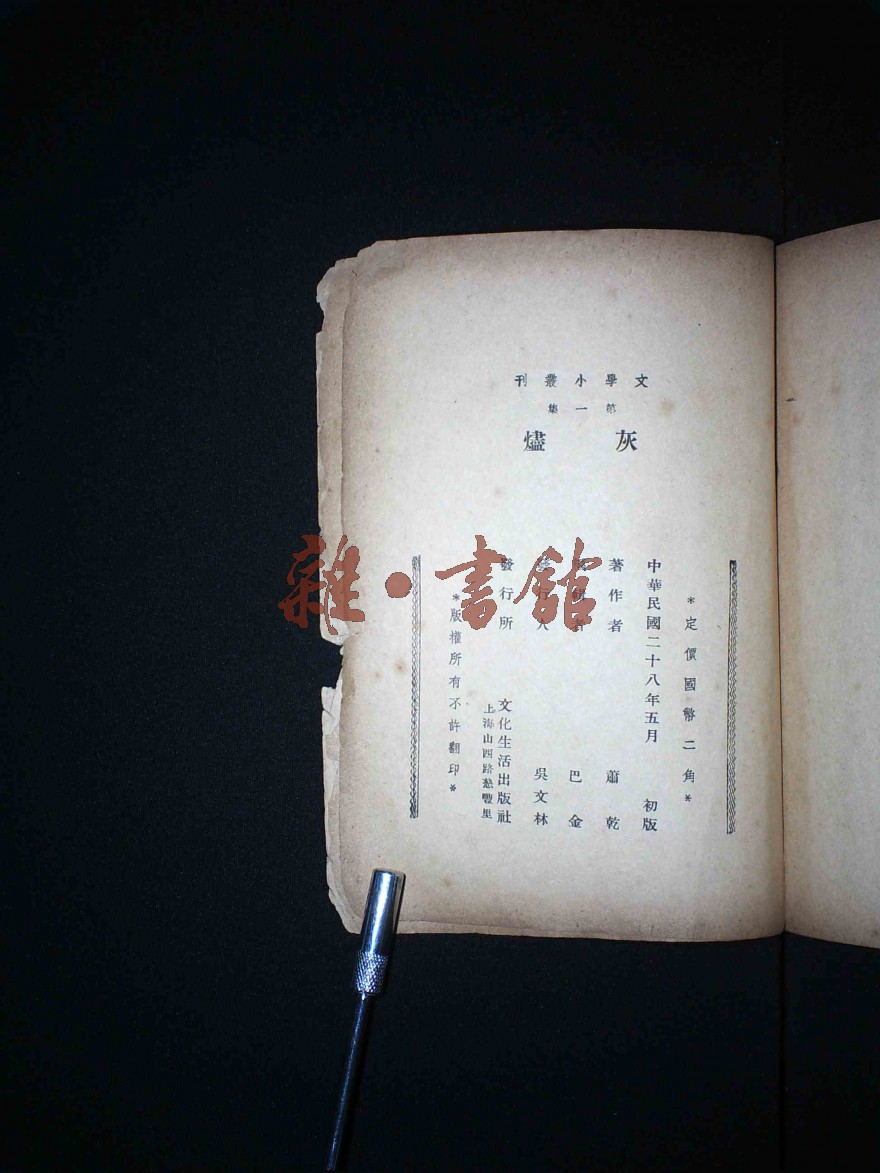 文學小叢刊
第一集
灰燼
*定價國幣二角*
中華民國二十八年五月 初版
著作者 蕭乾
編輯者 巴金
發行人 吳文林
發行所 文化生活出版社
上海山西路慈豐里
*版權所有不許翻印*
雜·書館